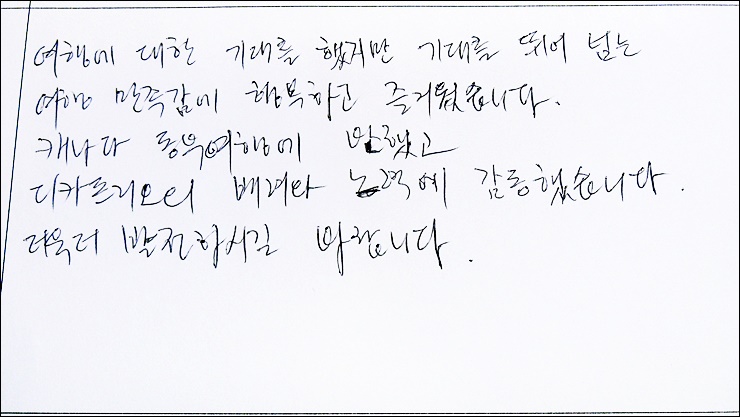 여행에 대한 기대를 했지만 기대를 뛰어 넘는
여행 만족감에 행복하고 즐거웠습니다.
캐나다 동부여행에 반했고
디카프리오의 배려와 노력에 감동했습니다.
더욱더 발전하시길 바랍니다.